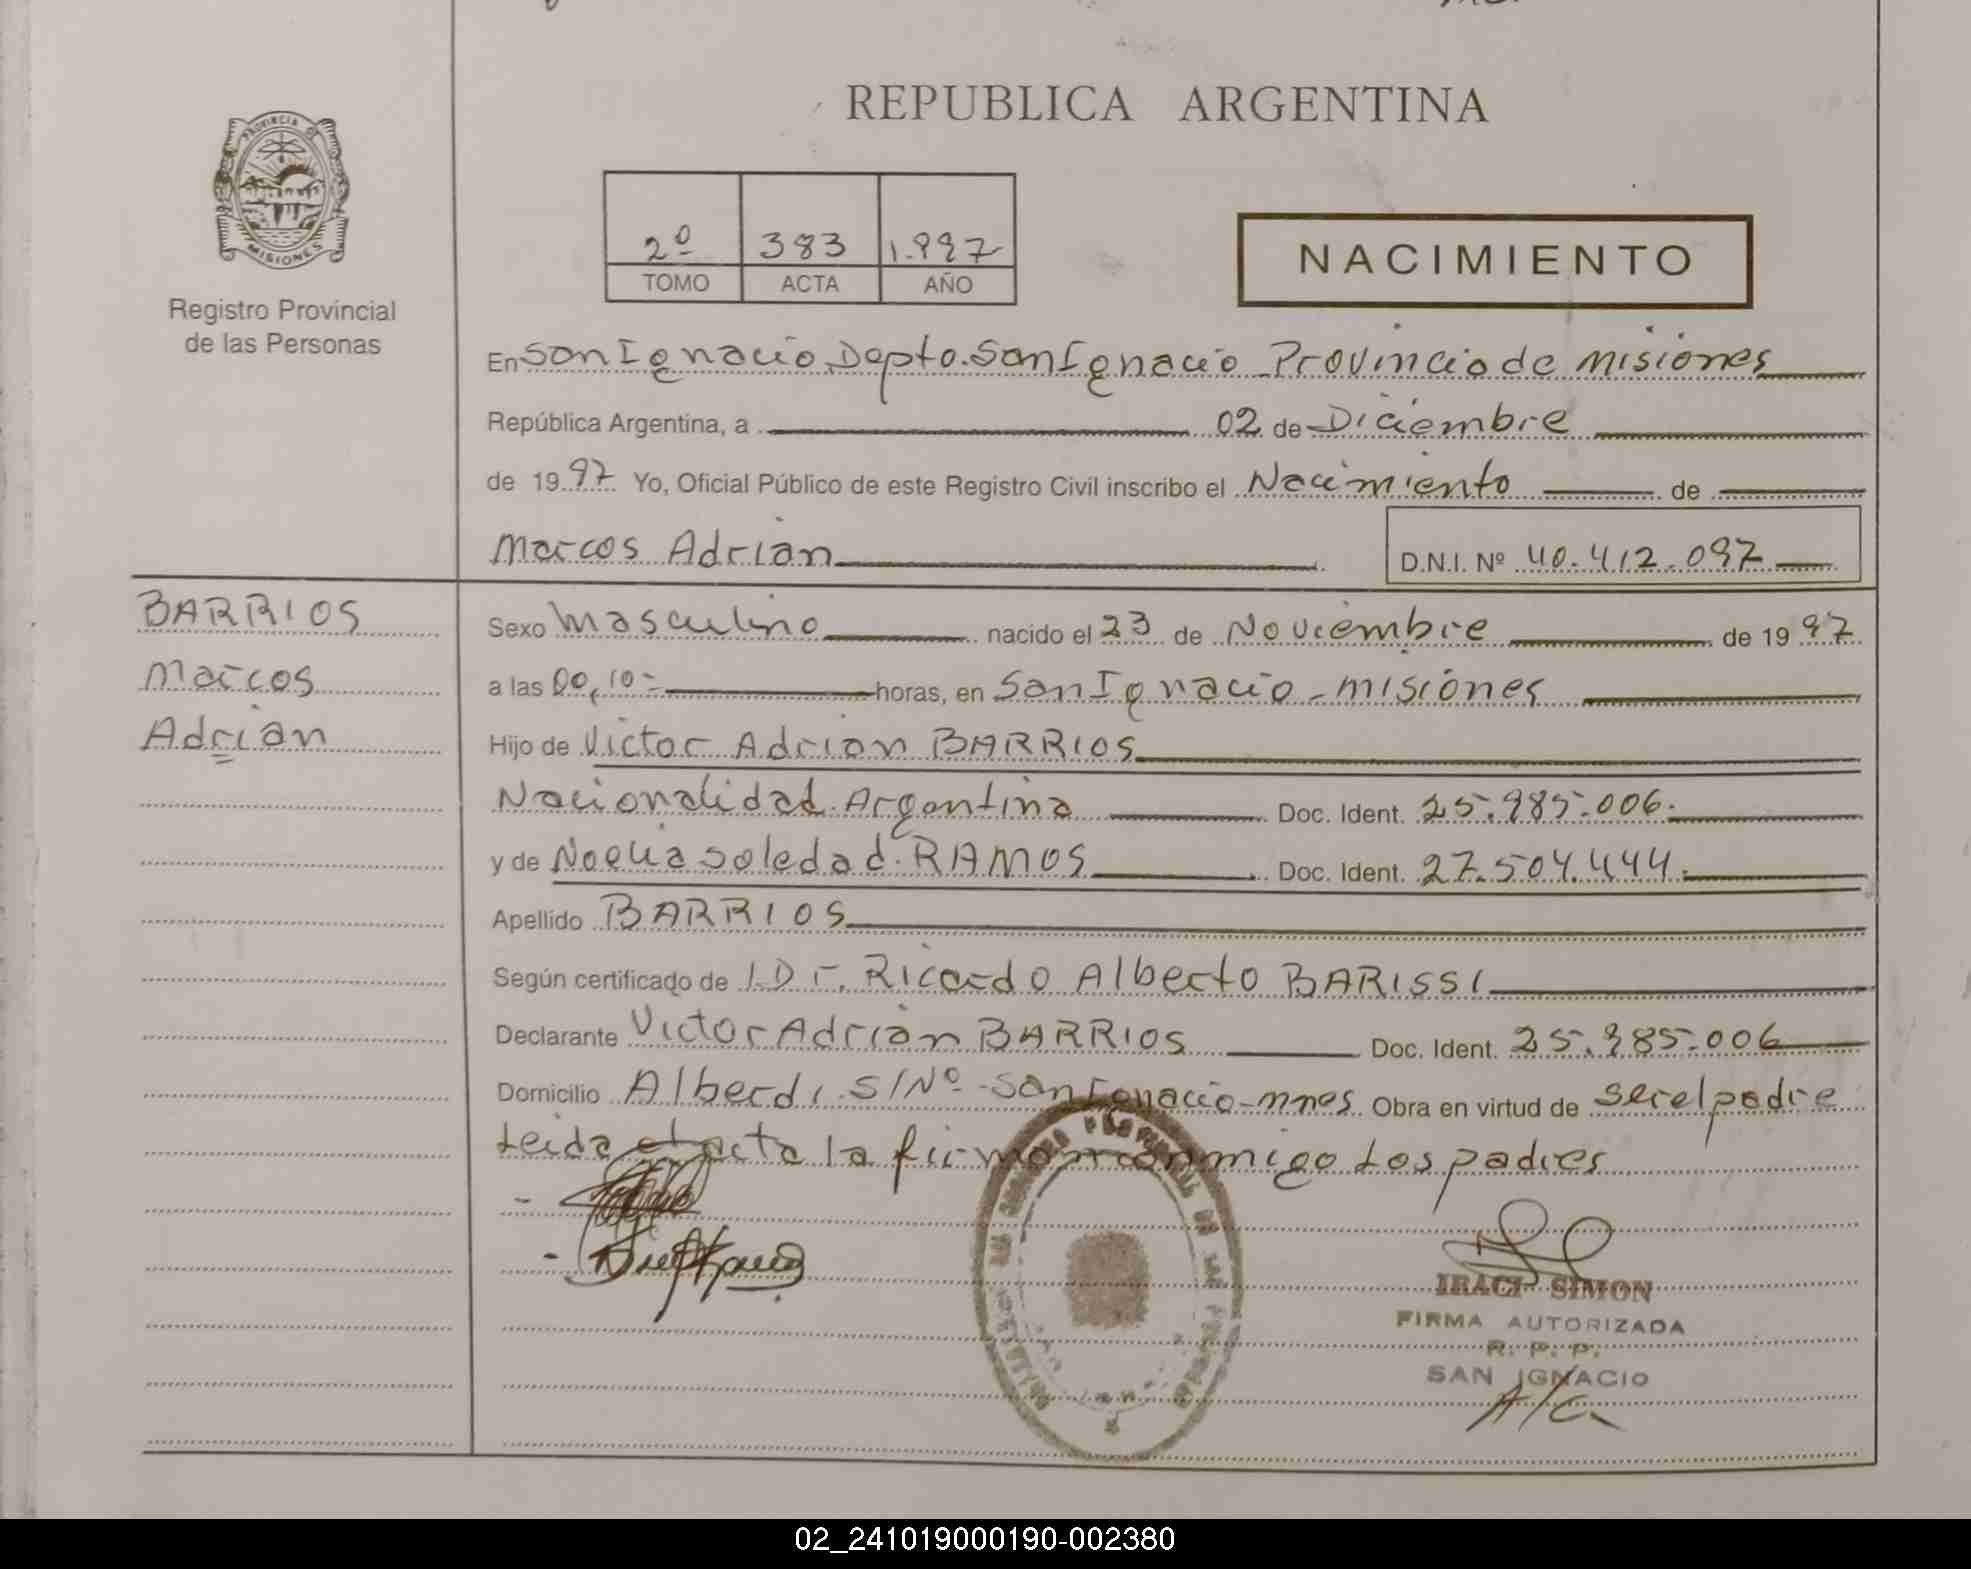 REPUBLICA ARGENTINA
PROVINCIA DE
MISIONES
Registro Provincial
de las Personas
2º 383 1.997
TOMO ACTA AÑO
NACIMIENTO
En San Ignacio Depto. San Ignacio Provincia de Misiones
República Argentina, a 02 de Diciembre
de 1997 Yo, Oficial Público de este Registro Civil inscribo el Nacimiento de
Marcos Adrian D.N.I. Nº 40.412.097
BARRIOS
Marcos
Adrian
Sexo Masculino nacido el 23 de Noviembre de 1997
a las 00,10- horas, en San Ignacio - Misiones
Hijo de Victor Adrian BARRIOS
Nacionalidad Argentina Doc. Ident. 25.985.006.
y de Noelia Soledad RAMOS Doc. Ident. 27.504.444.
Apellido BARRIOS
Según certificado de Dr. Ricardo Alberto BARISSI
Declarante Victor Adrian BARRIOS Doc. Ident. 25.985.006
Domicilio Alberdi S/Nº - San Ignacio - Mnes Obra en virtud de ser el padre
Leida el acta la firman conmigo Los padres
IRACI SIMON
FIRMA AUTORIZADA
R. P. P.
SAN IGNACIO
A/C
02_241019000190-002380